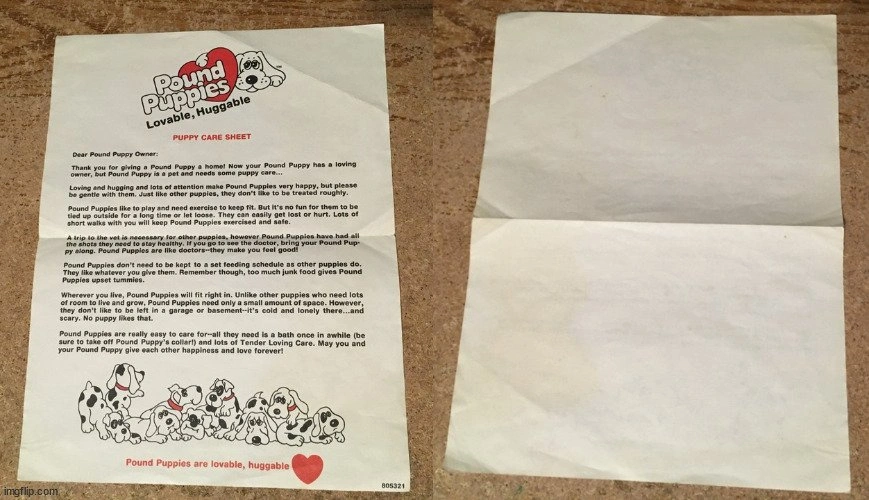 Pound
Puppies
TM
Lovable, Huggable
PUPPY CARE SHEET
Dear Pound Puppy Owner:
Thank you for giving a Pound Puppy a home! Now your Pound Puppy has a loving
owner, but Pound Puppy is a pet and needs some puppy care...
Loving and hugging and lots of attention make Pound Puppies very happy, but please
be gentle with them. Just like other puppies, they don't like to be treated roughly.
Pound Puppies like to play and need exercise to keep fit. But it's no fun for them to be
tied up outside for a long time or let loose. They can easily get lost or hurt. Lots of
short walks with you will keep Pound Puppies exercised and safe.
A trip to the vet is necessary for other puppies, however Pound Puppies have had all
the shots they need to stay healthy. If you go to see the doctor, bring your Pound Pup-
py along. Pound Puppies are like doctors--they make you feel good!
Pound Puppies don't need to be kept to a set feeding schedule as other puppies do.
They like whatever you give them. Remember though, too much junk food gives Pound
Puppies upset tummies.
Wherever you live, Pound Puppies will fit right in. Unlike other puppies who need lots
of room to live and grow, Pound Puppies need only a small amount of space. However,
they don't like to be left in a garage or basement--it's cold and lonely there...and
scary. No puppy likes that.
Pound Puppies are really easy to care for--all they need is a bath once in awhile (be
sure to take off Pound Puppy's collar!) and lots of Tender Loving Care. May you and
your Pound Puppy give each other happiness and love forever!
Pound Puppies are lovable, huggable
805321
imgflip.com